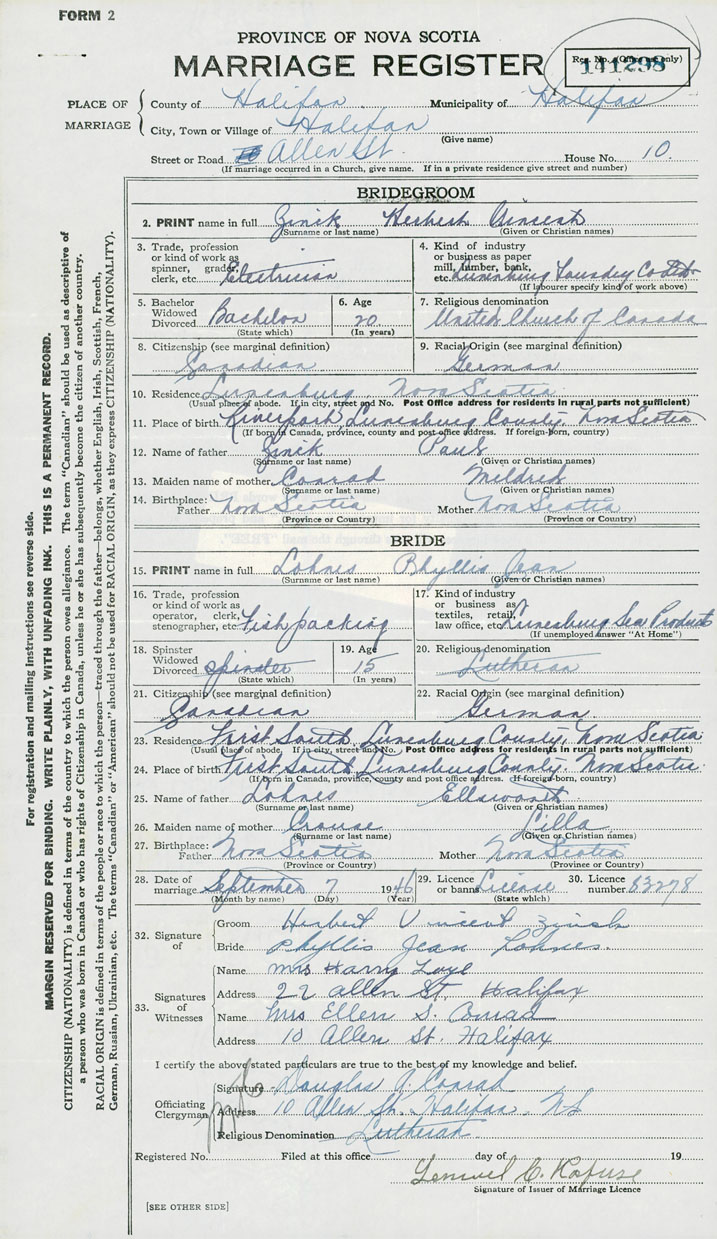 FORM 2
PROVINCE OF NOVA SCOTIA
MARRIAGE REGISTER
Reg. No. (Office use only)
141298
PLACE OF MARRIAGE
County of Halifax Municipality of Halifax
City, Town or Village of Halifax
(Give name)
Street or Road Allen St. House No. 10.
(If marriage occurred in a Church, give name. If in a private residence give street and number)
BRIDEGROOM
2. PRINT name in full Zinik Herbert Vincent
(Surname or last name) (Given or Christian names)
3. Trade, profession or kind of work as spinner, grader, clerk, etc. Electrician
4. Kind of industry or business as paper mill, lumber, bank, etc. Lunenburg Foundry Co Ltd
(If labourer specify kind of work above)
5. Bachelor Widowed Divorced Bachelor
(State which)
6. Age 20
(In years)
7. Religious denomination United Church of Canada
8. Citizenship (see marginal definition) Canadian
9. Racial Origin (see marginal definition) German
10. Residence Lunenburg, Nova Scotia
(Usual place of abode. If in city, street and No. Post Office address for residents in rural parts not sufficient)
11. Place of birth Riverport Lunenburg County, Nova Scotia
(If born in Canada, province, county and post office address. If foreign-born, country)
12. Name of father Zinik Paul
(Surname or last name) (Given or Christian names)
13. Maiden name of mother Conrad Mildred
(Surname or last name) (Given or Christian names)
14. Birthplace: Father Nova Scotia Mother Nova Scotia
(Province or Country) (Province or Country)
BRIDE
15. PRINT name in full Lohnes Phyllis Jean
(Surname or last name) (Given or Christian names)
16. Trade, profession or kind of work as operator, clerk, stenographer, etc. Fish packing
17. Kind of industry or business as textiles, retail, law office, etc. Lunenburg Sea Products
(If unemployed answer "At Home")
18. Spinster Widowed Divorced Spinster
(State which)
19. Age 15
(In years)
20. Religious denomination Lutheran
21. Citizenship (see marginal definition) Canadian
22. Racial Origin (see marginal definition) German
23. Residence First South, Lunenburg County, Nova Scotia
(Usual place of abode. If in city, street and No. Post Office address for residents in rural parts not sufficient)
24. Place of birth First South, Lunenburg County, Nova Scotia.
(If born in Canada, province, county and post office address. If foreign-born, country)
25. Name of father Lohnes Ellsworth
(Surname or last name) (Given or Christian names)
26. Maiden name of mother Crouse Lilla
(Surname or last name) (Given or Christian names)
27. Birthplace: Father Nova Scotia Mother Nova Scotia
(Province or Country) (Province or Country)
28. Date of marriage September 7 1946
(Month by name) (Day) (Year)
29. Licence or banns License
(State which)
30. Licence number 53278
32. Signature of
Groom Herbert Vincent Zinik
Bride Phyllis Jean Lohnes.
33. Signatures of Witnesses
Name Mrs Harry Loye
Address 22 Allen St. Halifax
Name Mrs Ellen S. Conrad
Address 10 Allen St. Halifax
I certify the above stated particulars are true to the best of my knowledge and belief.
Officiating Clergyman
Signature Douglas A. Conrad
Address 10 Allen St. Halifax. NS
Religious Denomination Lutheran
Registered No. Filed at this office day of 19
Lemuel C. Rafuse
Signature of Issuer of Marriage Licence
[SEE OTHER SIDE]
For registration and mailing instructions see reverse side.
MARGIN RESERVED FOR BINDING. WRITE PLAINLY, WITH UNFADING INK. THIS IS A PERMANENT RECORD.
CITIZENSHIP (NATIONALITY) is defined in terms of the country to which the person owes allegiance. The term "Canadian" should be used as descriptive of
a person who was born in Canada or who has rights of Citizenship in Canada, unless he or she has subsequently become the citizen of another country.
RACIAL ORIGIN is defined in terms of the people or race to which the person—traced through the father—belongs, whether English, Irish, Scottish, French,
German, Russian, Ukrainian, etc. The terms "Canadian" or "American" should not be used for RACIAL ORIGIN, as they express CITIZENSHIP (NATIONALITY).